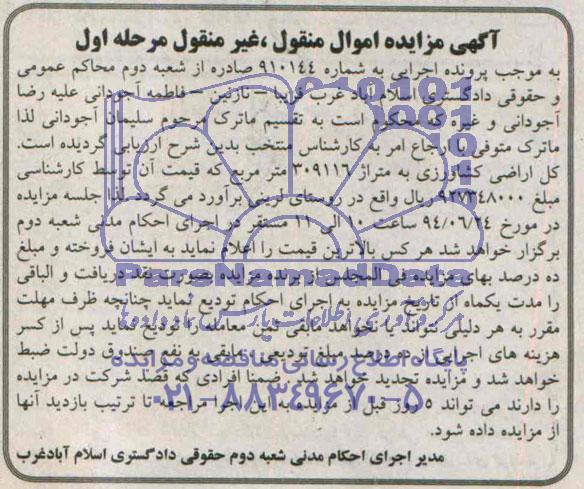 آگهی مزایده اموال منقول ،غیر منقول مرحله اول
به موجب پرونده اجرایی به شماره ۹۱۰۱۴۴ صادره از شعبه دوم محاکم عمومی
و حقوقی دادگستری اسلام آباد غرب فریبا – نازنین – فاطمه آجودانی علیه رضا
آجودانی و غیره که محکوم است به تقسیم ماترک مرحوم سلیمان آجودانی لذا
ماترک متوفی با ارجاع امر به کارشناس منتخب بدین شرح ارزیابی گردیده است.
کل اراضی کشاورزی به متراژ ۳۰۹۱۱۶ متر مربع که قیمت آن توسط کارشناسی
مبلغ ۹۲۷۳۴۸۰۰۰ ریال واقع در روستای لرینی برآورد می گردد لذا جلسه مزایده
در مورخ ۹۴/۰۶/۲۴ ساعت ۱۰ الی ۱۱ مستقر در اجرای احکام مدنی شعبه دوم
برگزار خواهد شد هر کس بالاترین قیمت را اعلام نماید به ایشان فروخته و مبلغ
ده درصد بهای مزایده فی المجلس از برنده مزایده بصورت نقد دریافت و الباقی
را مدت یکماه از تاریخ مزایده به اجرای احکام تودیع نماید چنانچه ظرف مهلت
مقرر به هر دلیلی نتواند یا نخواهد مابقی ثمن معامله را تودیع نماید پس از کسر
هزینه های اجرایی از ده درصد مبلغ تودیعی مابقی به نفع صندوق دولت ضبط
خواهد شد و مزایده تجدید خواهد شد. ضمنا افرادی که قصد شرکت در مزایده
را دارند می تواند ۵ روز قبل از مزایده به این اجرا مراجعه تا ترتیب بازدید آنها
از مزایده داده شود.
مدیر اجرای احکام مدنی شعبه دوم حقوقی دادگستری اسلام آبادغرب
ParsNamadData
پایگاه اطلاع رسانی مناقصه و مزایده
۰۲۱-۸۸۳۴۹۶۷۰-۵